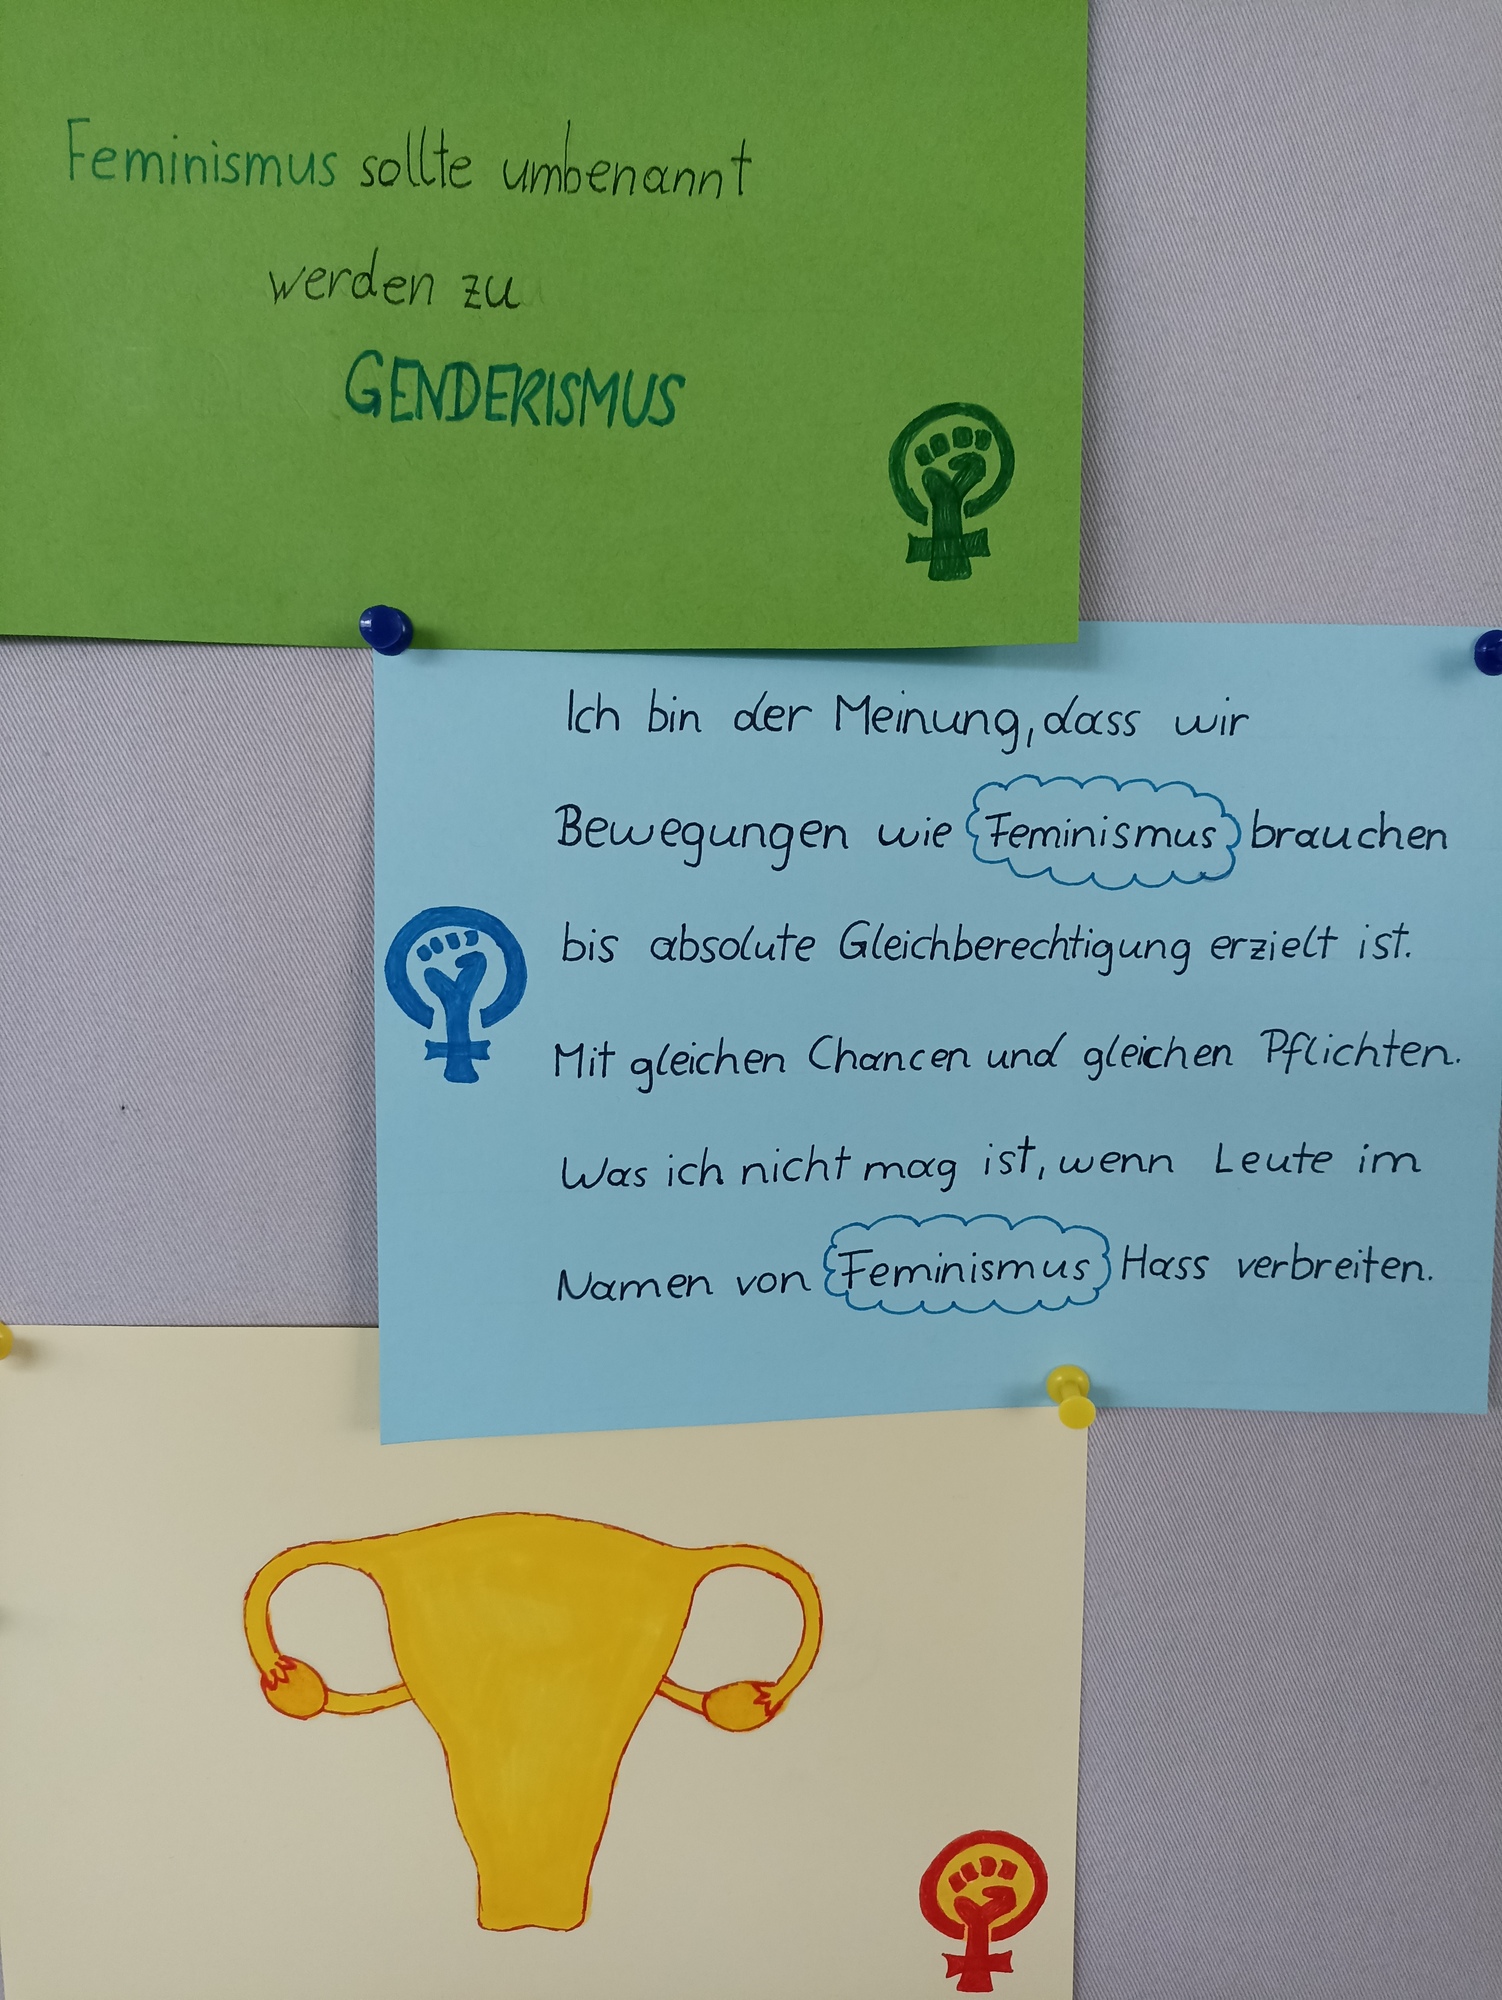 Feminismus sollte umbenannt
werden zu
GENDERISMUS
Ich bin der Meinung, dass wir
Bewegungen wie Feminismus brauchen
bis absolute Gleichberechtigung erzielt ist.
Mit gleichen Chancen und gleichen Pflichten.
Was ich nicht mag ist, wenn Leute im
Namen von Feminismus Hass verbreiten.